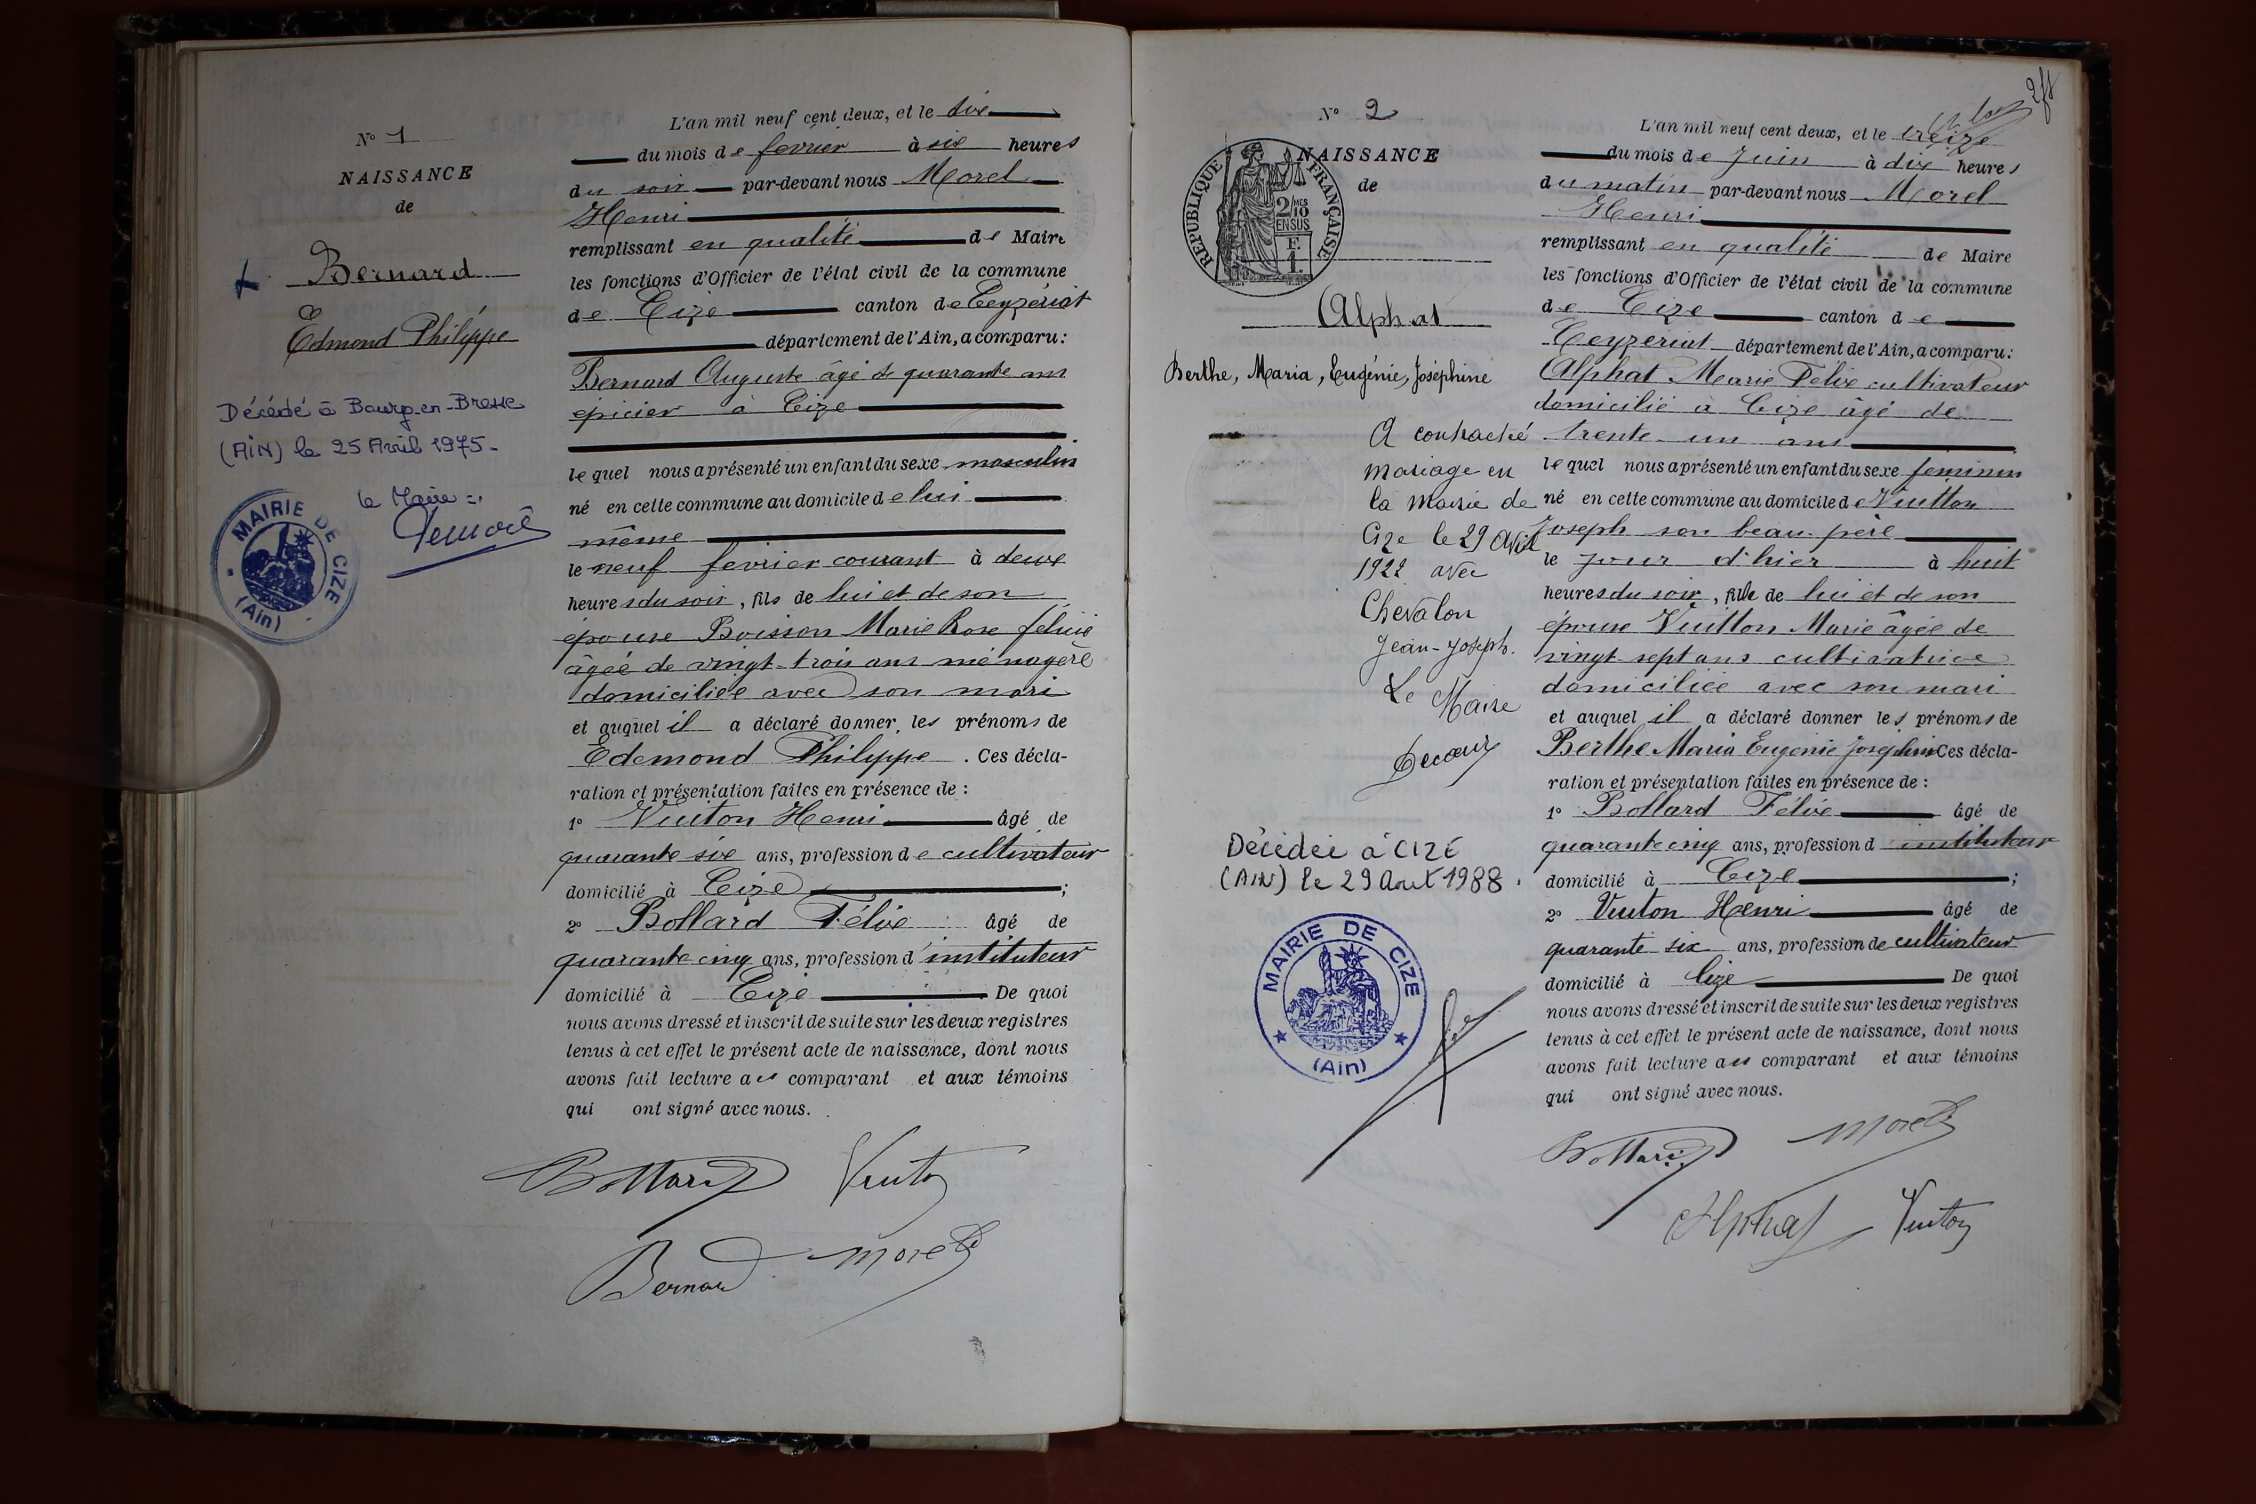 N° 1
NAISSANCE
de
Bernard
Edmond Philippe
Décédé à Bourg-en-Bresse
(AiN) le 25 Avril 1975-
le Maire =,
MAIRIE DE CIZE
(Ain)
L'an mil neuf cent deux, et le dix
du mois de février à six heures
du soir par-devant nous Morel
Henri
remplissant en qualité de Maire
les fonctions d'Officier de l'état civil de la commune
de Cize canton de Ceyzériat
département de l'Ain, a comparu:
Bernard Auguste âgé de quarante ans
épicier à Cize
lequel nous a présenté un enfant du sexe masculin
né en cette commune au domicile de lui
même
le neuf fevrier courant à deux
heures du soir, fils de lui et de son
épouse Boisson Marie Rose félicie
âgée de vingt-trois ans ménagère
domiciliée avec son mari
et auquel il a déclaré donner les prénoms de
Edemond Philippe. Ces décla-
ration et présentation faites en présence de :
1° Vuiton Henri âgé de
quarante six ans, profession de cultivateur
domicilié à Cize ;
2° Bollard Félix âgé de
quarante cinq ans, profession d'instituteur
domicilié à Cize De quoi
nous avons dressé et inscrit de suite sur les deux registres
tenus à cet effet le présent acte de naissance, dont nous
avons fait lecture au comparant et aux témoins
qui ont signé avec nous.
Bollard Vuiton
Bernard Morel
N° 2
NAISSANCE
de
REPUBLIQUE FRANÇAISE
2/10 MES
EN SUS
Alphat
Berthe, Maria, Eugénie, Joséphine
A contracté
mariage en
la mairie de
Cize le 29 Avril
1922 avec
Chevalon
Jean-Joseph.
Le Maire
Décédée à CIZE
(AIN) le 29 Aout 1988.
MAIRIE DE CIZE
(Ain)
L'an mil neuf cent deux, et le treize
du mois de Juin à dix heures
du matin par-devant nous Morel
Henri
remplissant en qualité de Maire
les fonctions d'Officier de l'état civil de la commune
de Cize canton de
Ceyzeriat département de l'Ain, a comparu:
Alphat Marie Felix cultivateur
domicilié à Cize âgé de
trente-un ans
lequel nous a présenté un enfant du sexe feminin
né en cette commune au domicile de Vuitton
Joseph son beau-père
le jour d'hier à huit
heures du soir, fille de lui et de son
épouse Vuitton Marie âgée de
vingt-sept ans cultivatrice
domiciliée avec son mari
et auquel il a déclaré donner les prénoms de
Berthe Maria Eugenie Josephine Ces décla-
ration et présentation faites en présence de :
1° Bollard Félix âgé de
quarante cinq ans, profession d instituteur
domicilié à Cize ;
2° Vuiton Henri âgé de
quarante six ans, profession de cultivateur
domicilié à Cize De quoi
nous avons dressé et inscrit de suite sur les deux registres
tenus à cet effet le présent acte de naissance, dont nous
avons fait lecture au comparant et aux témoins
qui ont signé avec nous.
Bollard Morel
Alphat Vuiton